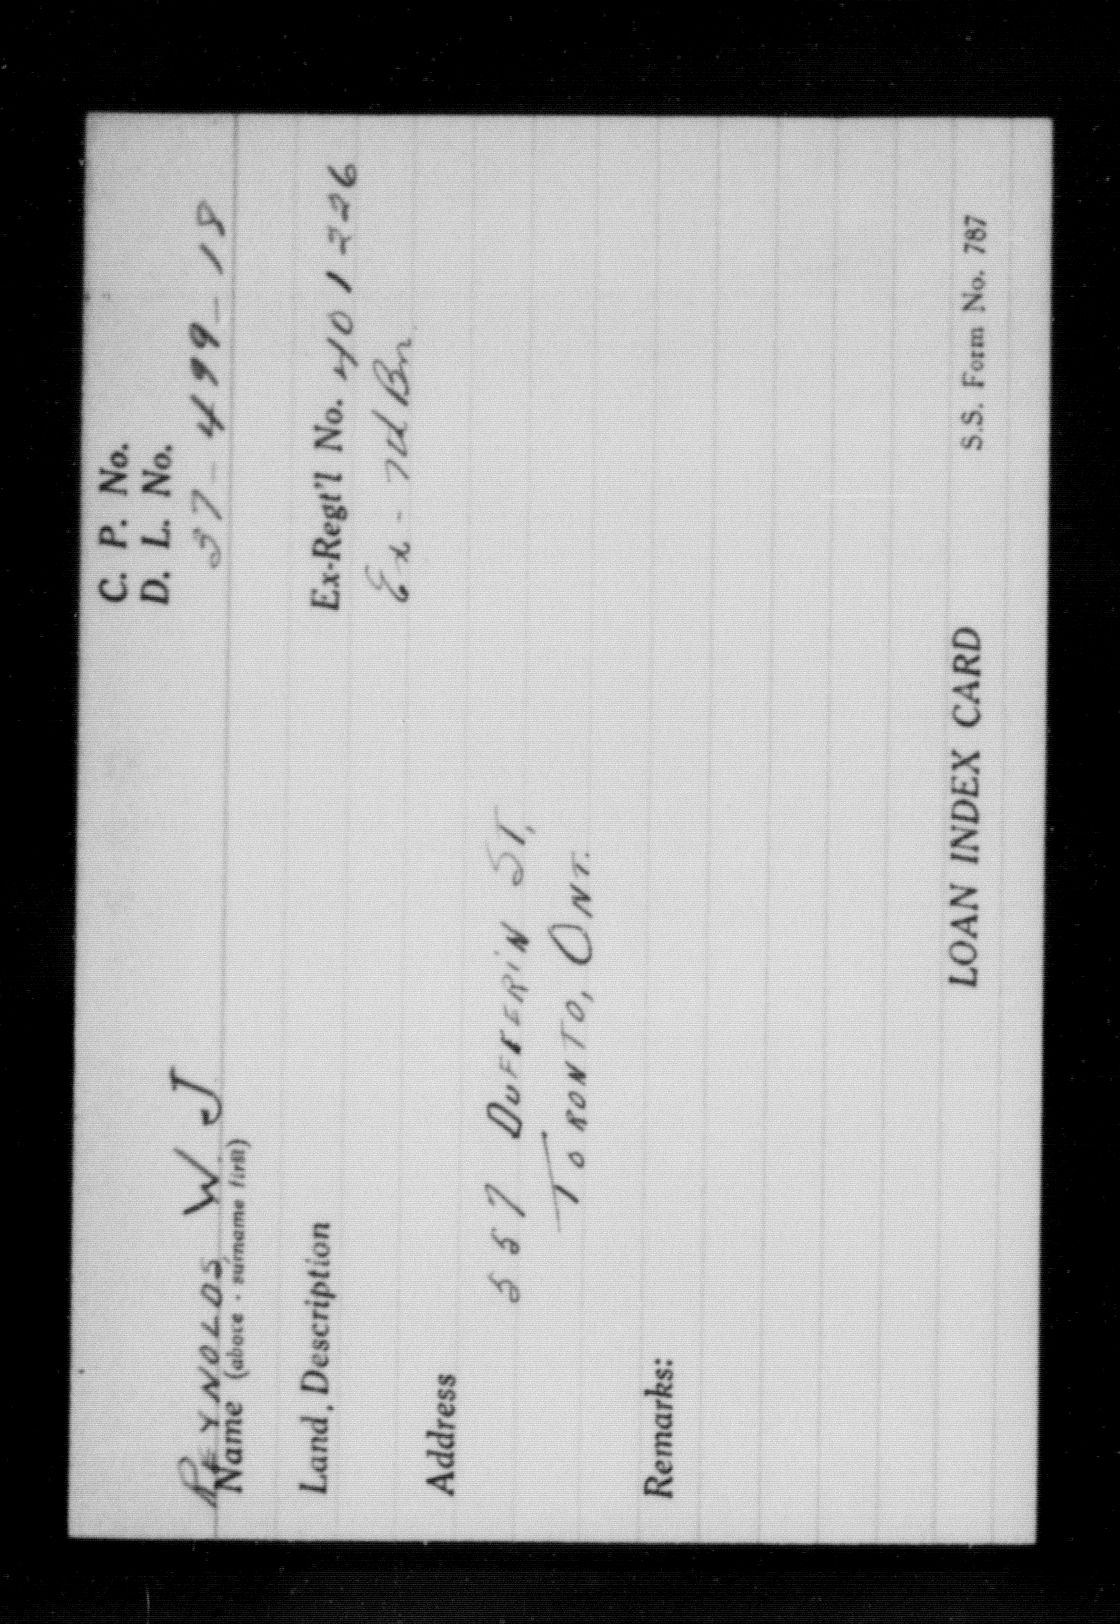 C. P. No.
D. L. No.
37-499-18
REYNOLDS, W. J
Name (above - surname first)
Land, Description
Ex-Regt'l No. 401226
Ex-7th Bn.
Address
557 DUFFERIN ST,
TORONTO, ONT.
Remarks:
LOAN INDEX CARD
S.S. Form No. 787